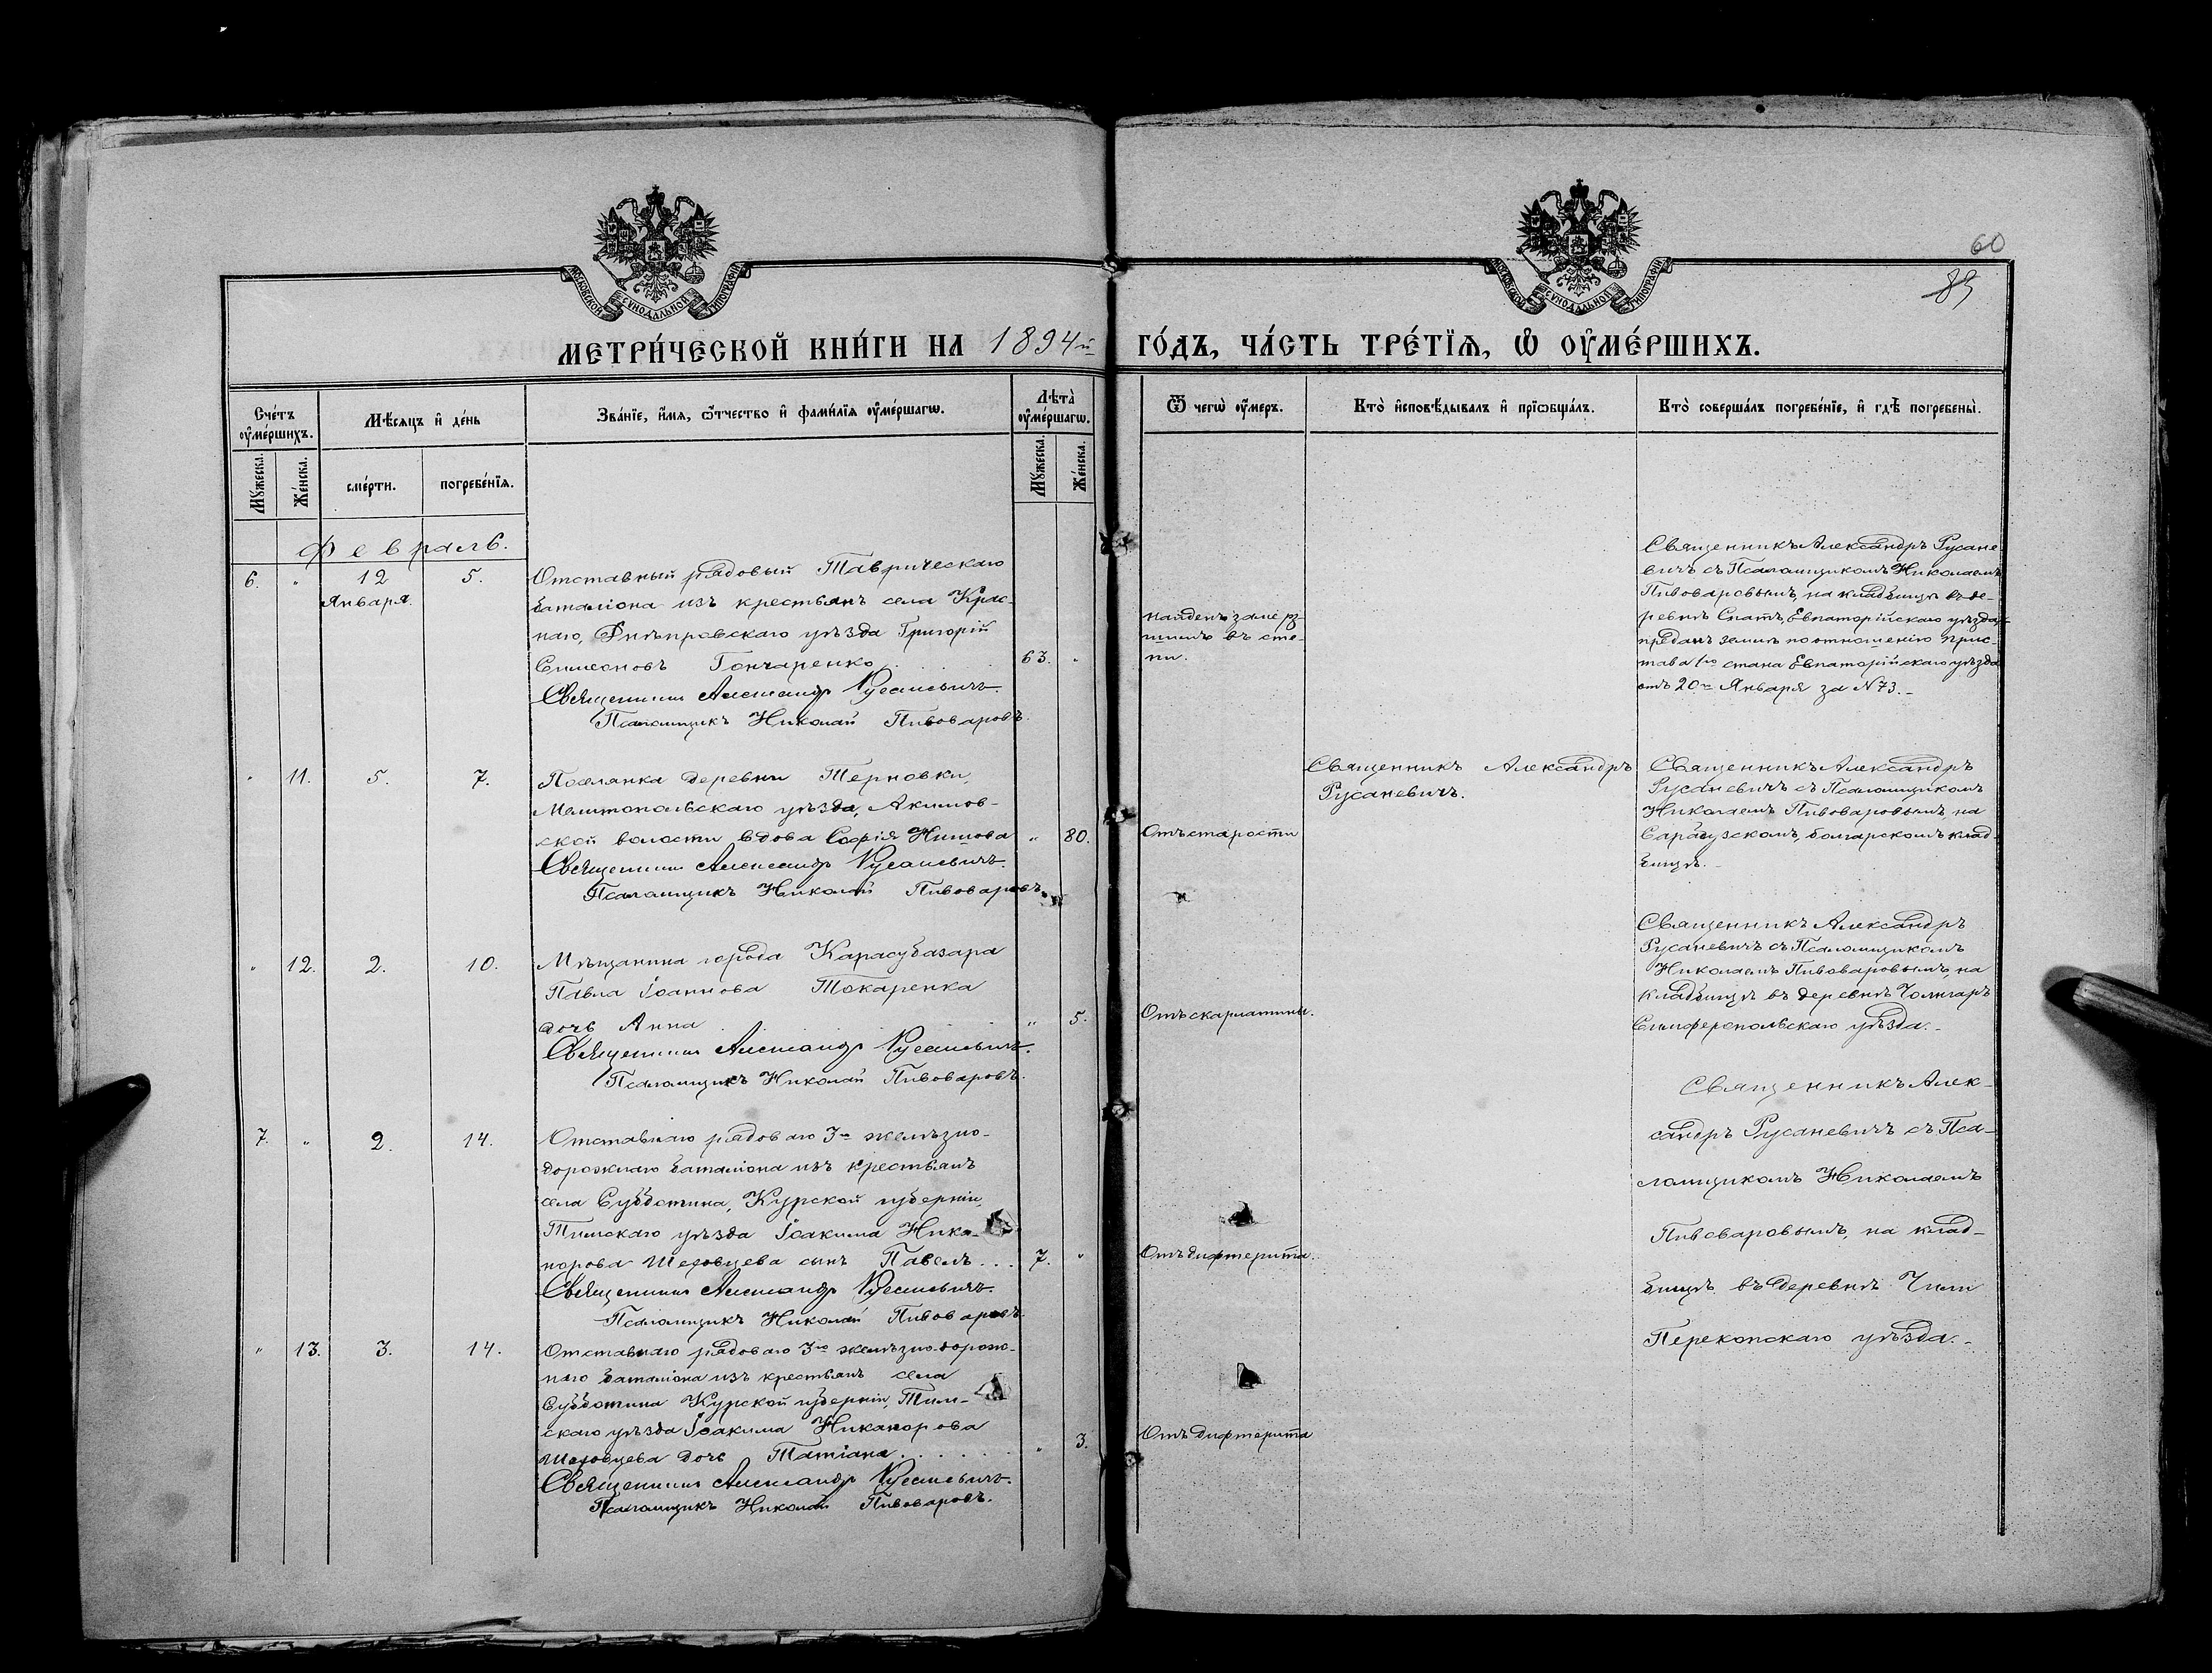 60
89
МОСКОВСКОЙ СѴНОДАЛЬНОЙ ТИПОГРАФІИ
МОСКОВСКОЙ СѴНОДАЛЬНОЙ ТИПОГРАФІИ
МЕТРИ́ЧЕСКОЙ КНИ́ГИ НА 1894й ГО́ДЪ, ЧА́СТЬ ТРЕ́ТЇѦ, Ѡ ОУМЕ́РШИХЪ.
Сче́тъ оуме́ршихъ.
Мѣ́сяцъ и де́нь
Зва́нїе, и́мя, ѻ́тчество и фами́лїя оуме́ршагѡ.
Лѣ́та оуме́ршагѡ.
Ѿ чегѡ̀ оу́меръ.
Кто̀ и҆сповѣ́дывалъ и҆ прїѡбща́лъ.
Кто̀ соверша́лъ погребе́нїе, и҆ гдѣ̀ погребены̀.
Мꙋжеска.
Же́нска.
сме́рти.
погребе́нїя.
Мꙋжеска.
Же́нска.
Февраль.
6. " 12 Января. 5.
Отставный рядовый Таврическаго
баталіона изъ крестьянъ села Крас-
наго, Днѣпровскаго уѣзда Григорій
Симеоновъ Гончаренко 63. "
Священникъ Александръ Русаневичъ.
Псаломщикъ Николай Пивоваровъ.
найденъ замерз-
шимъ въ сте-
пи.
Священникъ Александръ Русане-
вичъ съ Псаломщикомъ Николаемъ
Пивоваровымъ, на кладбищѣ въ де-
ревнѣ Спатъ, Евпаторійскаго уѣзда
преданъ землѣ по отношенію прис-
тава 1го стана Евпаторійскаго уѣзда
отъ 20го Января за N73.-
" 11. 5. 7.
Поселянка деревни Терновки,
Мелитопольскаго уѣзда, Акимов-
ской волости вдова Софія Нишова " 80.
Священникъ Александръ Русаневичъ.
Псаломщикъ Николай Пивоваровъ.
Отъ старости
Священникъ Александръ
Русаневичъ.
Священникъ Александръ
Русаневичъ съ Псаломщикомъ
Николаемъ Пивоваровымъ, на
болгарскомъ клад-
бищѣ.-
" 12. 2. 10.
Мѣщанина города Карасубазара
Павла Іоаннова Токаренка
дочь Анна " 5.
Священникъ Александръ Русаневичъ.
Псаломщикъ Николай Пивоваровъ.
Отъ скарлатины.
Священникъ Александръ
Русаневичъ съ Псаломщикомъ
Николаемъ Пивоваровымъ, на
кладбищѣ въ деревнѣ
Симферопольскаго уѣзда.-
7. " 2. 14.
Отставнаго рядоваго 3го желѣзно-
дорожнаго баталіона изъ крестьянъ
села Субботина, Курской губерніи,
Тимскаго уѣзда ІоакимаНика-
норова Шеховцева сынъ Павелъ... 7. "
Священникъ Александръ Русаневичъ.
Псаломщикъ Николай Пивоваровъ.
Отъ дифтерита.
Священникъ Алек-
сандръ Русаневичъ съ Пса-
ломщикомъ Николаемъ
Пивоваровымъ, на клад-
бищѣ въ деревнѣ Чили
Перекопскаго уѣзда.-
" 13. 3. 14.
Отставнаго рядоваго 3го желѣзно-дорож-
наго баталіона изъ крестьянъ села
Субботина Курской губерніи, Тим-
скаго уѣзда Іоакима Никанорова
Шеховцева дочь Татіана " 3.
Священникъ Александръ Русаневичъ.
Псаломщикъ Николай Пивоваровъ.
Отъ дифтерита